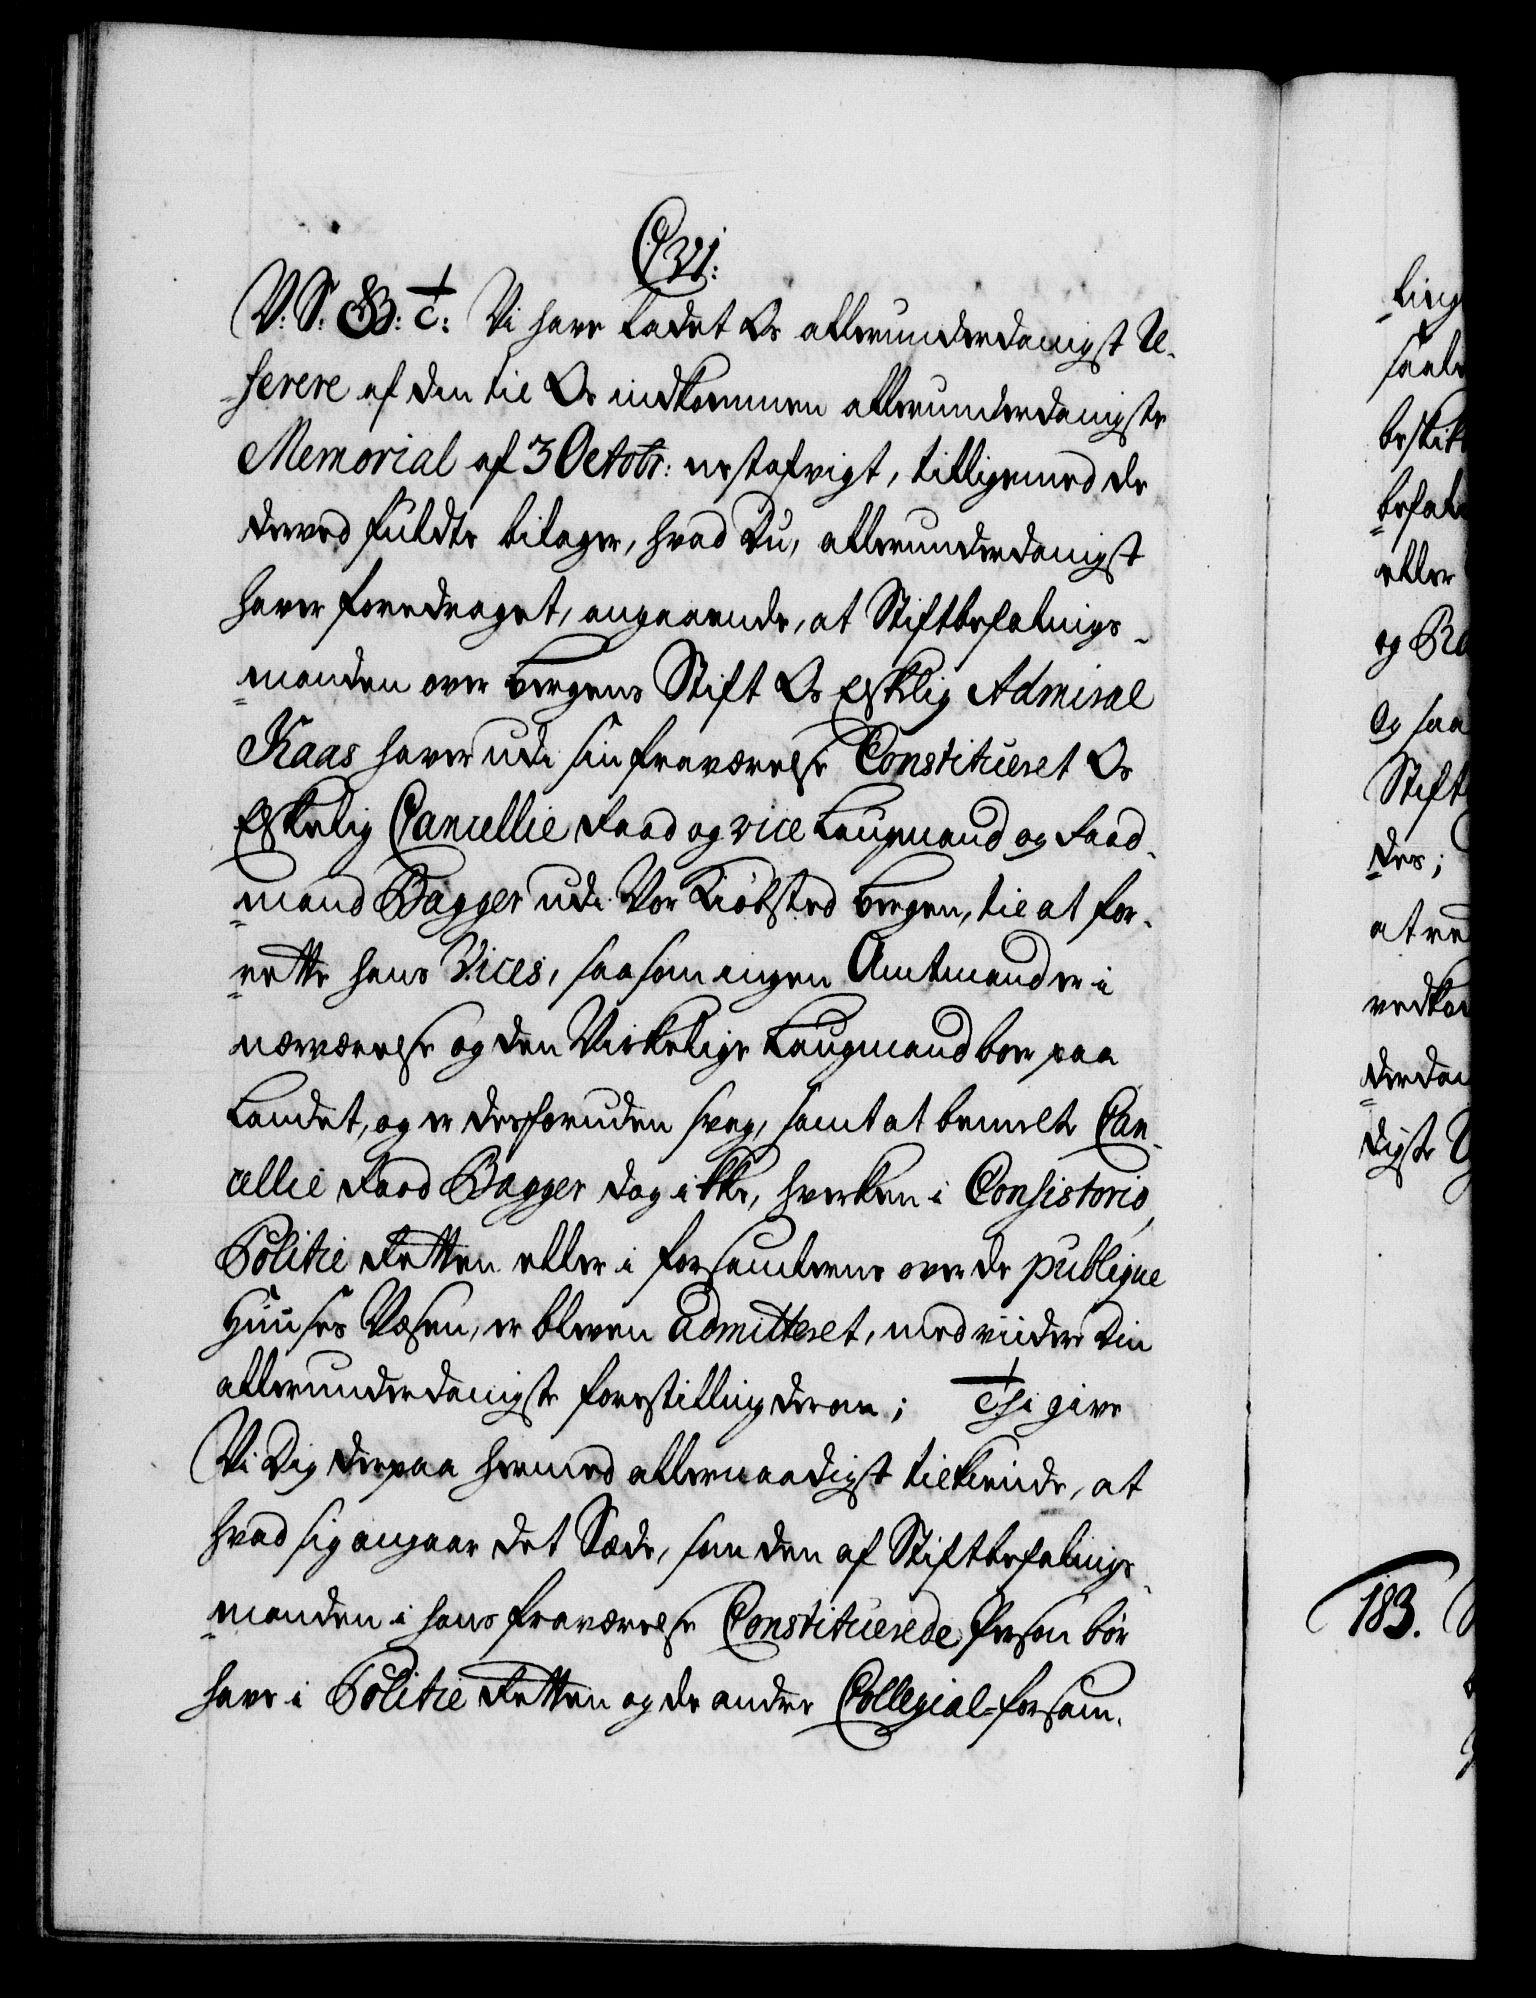 C VI:
V: S: G: B: t: Vi have ladet Os allerunderdanigst Re-
ferere af den til Os indkommen allerunderdanigste
Memorial af 3 Octobr: nestafvigt, tilligemed de
derved fuldte bilager, hvad Du, allerunderdanigst
haver foredraget, angaaende, at Stiftbefalnings-
manden over Bergens Stift Os Elskelig Admiral
Kaas haver udi sin fraværelse Constitueret Os
Elskelig Cancellie Raad og vice Laugmand og Raad-
mand Bagger udi Vor Kiøbsted Bergen, til at for-
rette hans Vices, saasom ingen Amtmand er i
nærværelse og den Virkelige Laugmand boer paa
Landet, og er desforuden svag, samt at bemelte Can-
cellie Raad Bagger dog ikke, hverken i Consistorio,
Politie Retten eller i forsamlerne over de publique
Huuses Væsen, er bleven admitteret, med viidere Din
allerunderdanigste forestilling derom; Thi give
Vi Dig derpaa hermed allernaadigst tilkiende, at
hvad sig angaar det Sæde, som den af Stiftbefalings-
manden i hans fraværelse Constituerede Person bør
have i Politie Retten og de andre Collegial-forsam-
ling
saale
beskik
befale
eller
og Ra
Og saa
Stift
des;
at re
vedko
derdan
digste
183.